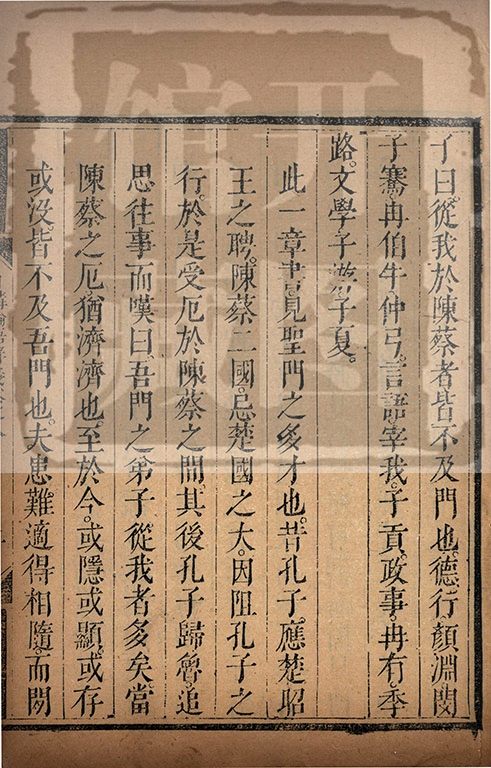 子曰。從我於陳蔡者皆不及門也。德行顏淵閔
子騫。冉伯牛仲弓。言語宰我。子貢。政事。冉有。季
路。文學子游。子夏。
此一章書見聖門之多才也。昔孔子應楚昭
王之聘。陳蔡二國。忌楚國之大。因阻孔子之
行。於是受厄於陳蔡之間。其後孔子歸魯。追
思往事而嘆曰。吾門之弟子從我者多矣。當
陳蔡之厄。猶濟濟也。至於今。或隱或顯。或存
或沒。皆不及吾門也。夫患難適得相隨。而閒